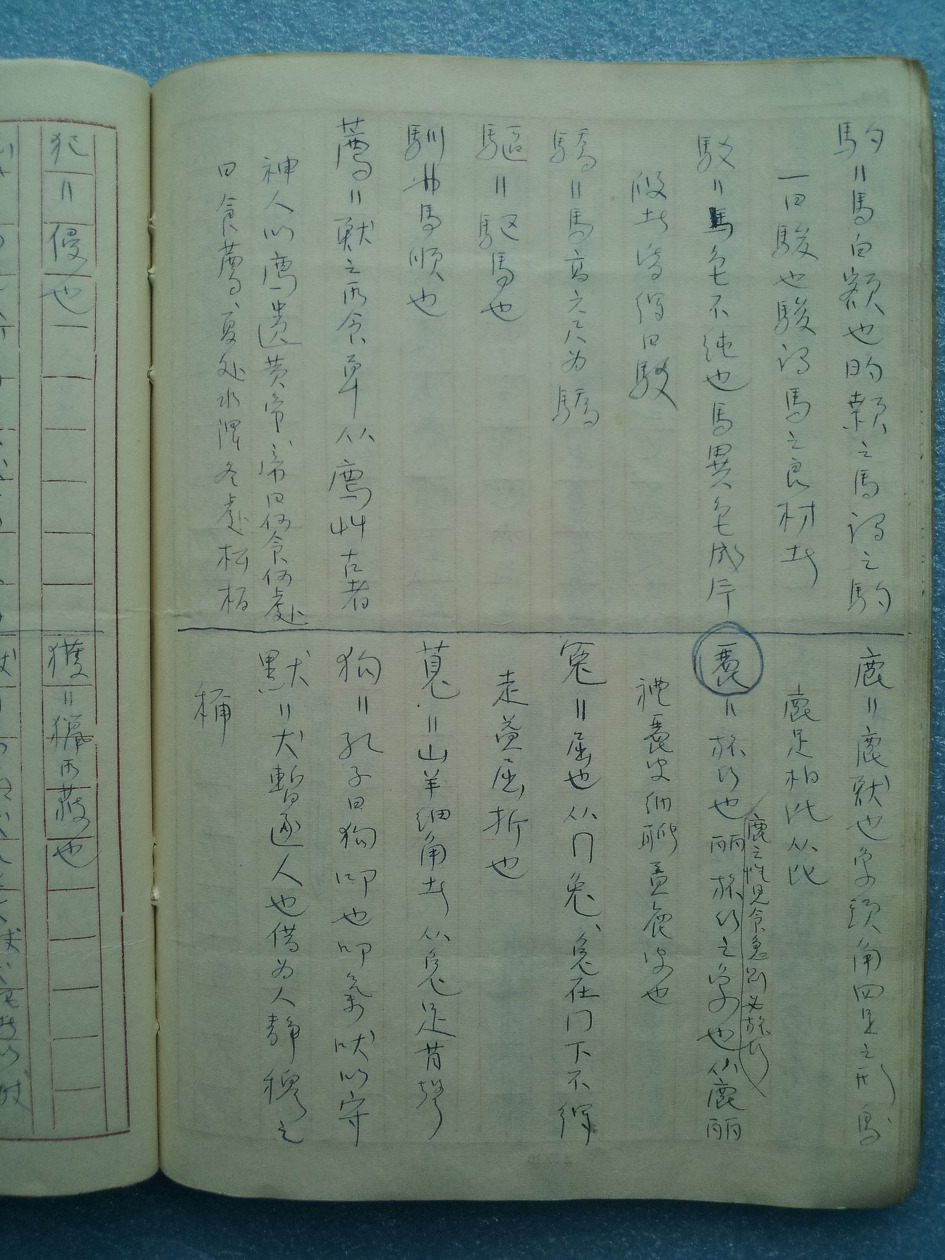 馰＝馬白額也旳顙之馬謂之馰
一曰駿也駿謂馬之良材者
駁＝馬色不純也馬異色成片
段者皆得曰駁
驕＝馬高六尺為驕
驅＝驱馬也
馴＝馬順也
薦＝獸之所食草从廌艸古者
神人以廌遺黃帝、帝曰何食何處
曰食薦、夏处水澤冬處松柏
鹿＝鹿獸也象頭角四足之形鳥
鹿足相比从比
麗＝旅行也丽旅行之象也从鹿丽
鹿之性見食急則必旅行
禮麗皮納聘蓋鹿皮也
冤＝屈也从冂兔、兔在冂下不得
走益屈折也
莧＝山羊细角者从兔足苜聲
狗＝孔子曰狗叩也叩氣吠以守
默＝犬暫逐人也借为人靜穆之
稱
犯＝侵也
獲＝獵所获也